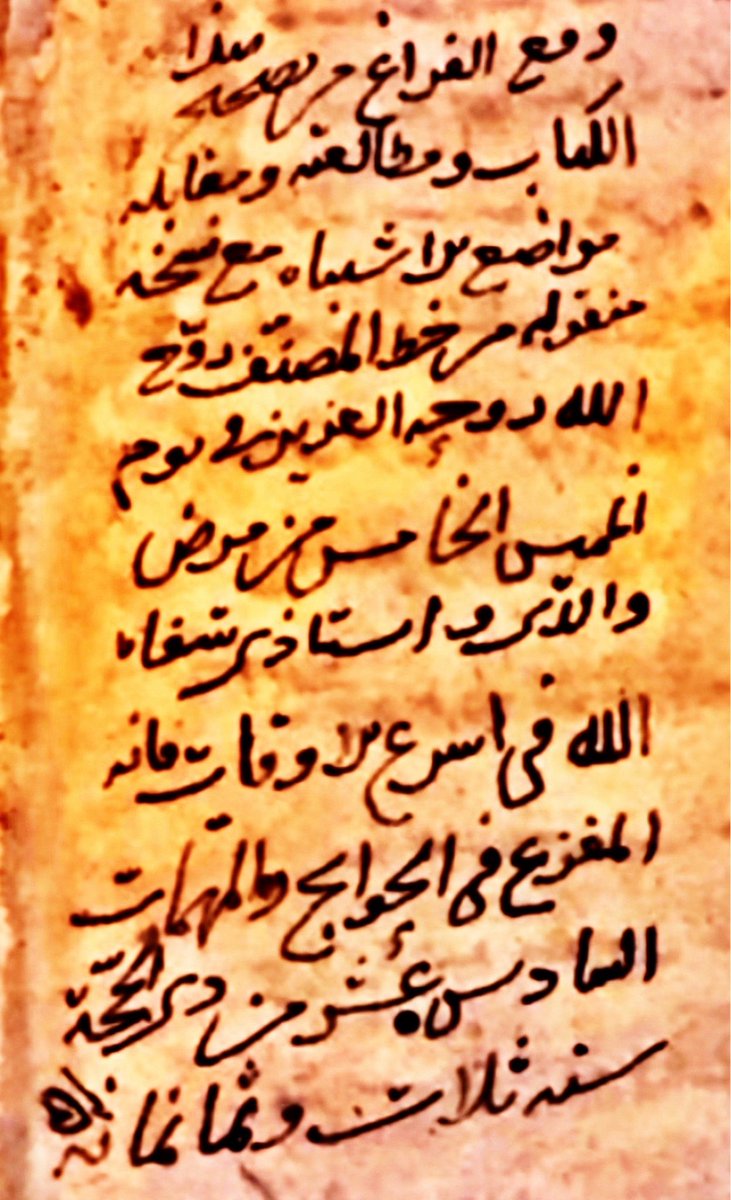 وقع الفراغ من تصحيح هذا
الكتاب ومطالعته ومقابلة
مواضع الاشتباه مع نسخة
منقولة من خط المصنّف روّح
الله روحه العزيز في يوم
الخميس الخامس من مرض
والدّي و استاذي شفاه
الله في اسرع الاوقات فانه
المفزع في الحوايج والمهمّات
السادس عشر من ذي الحجّة
سنة ثلاث وثمانمائة